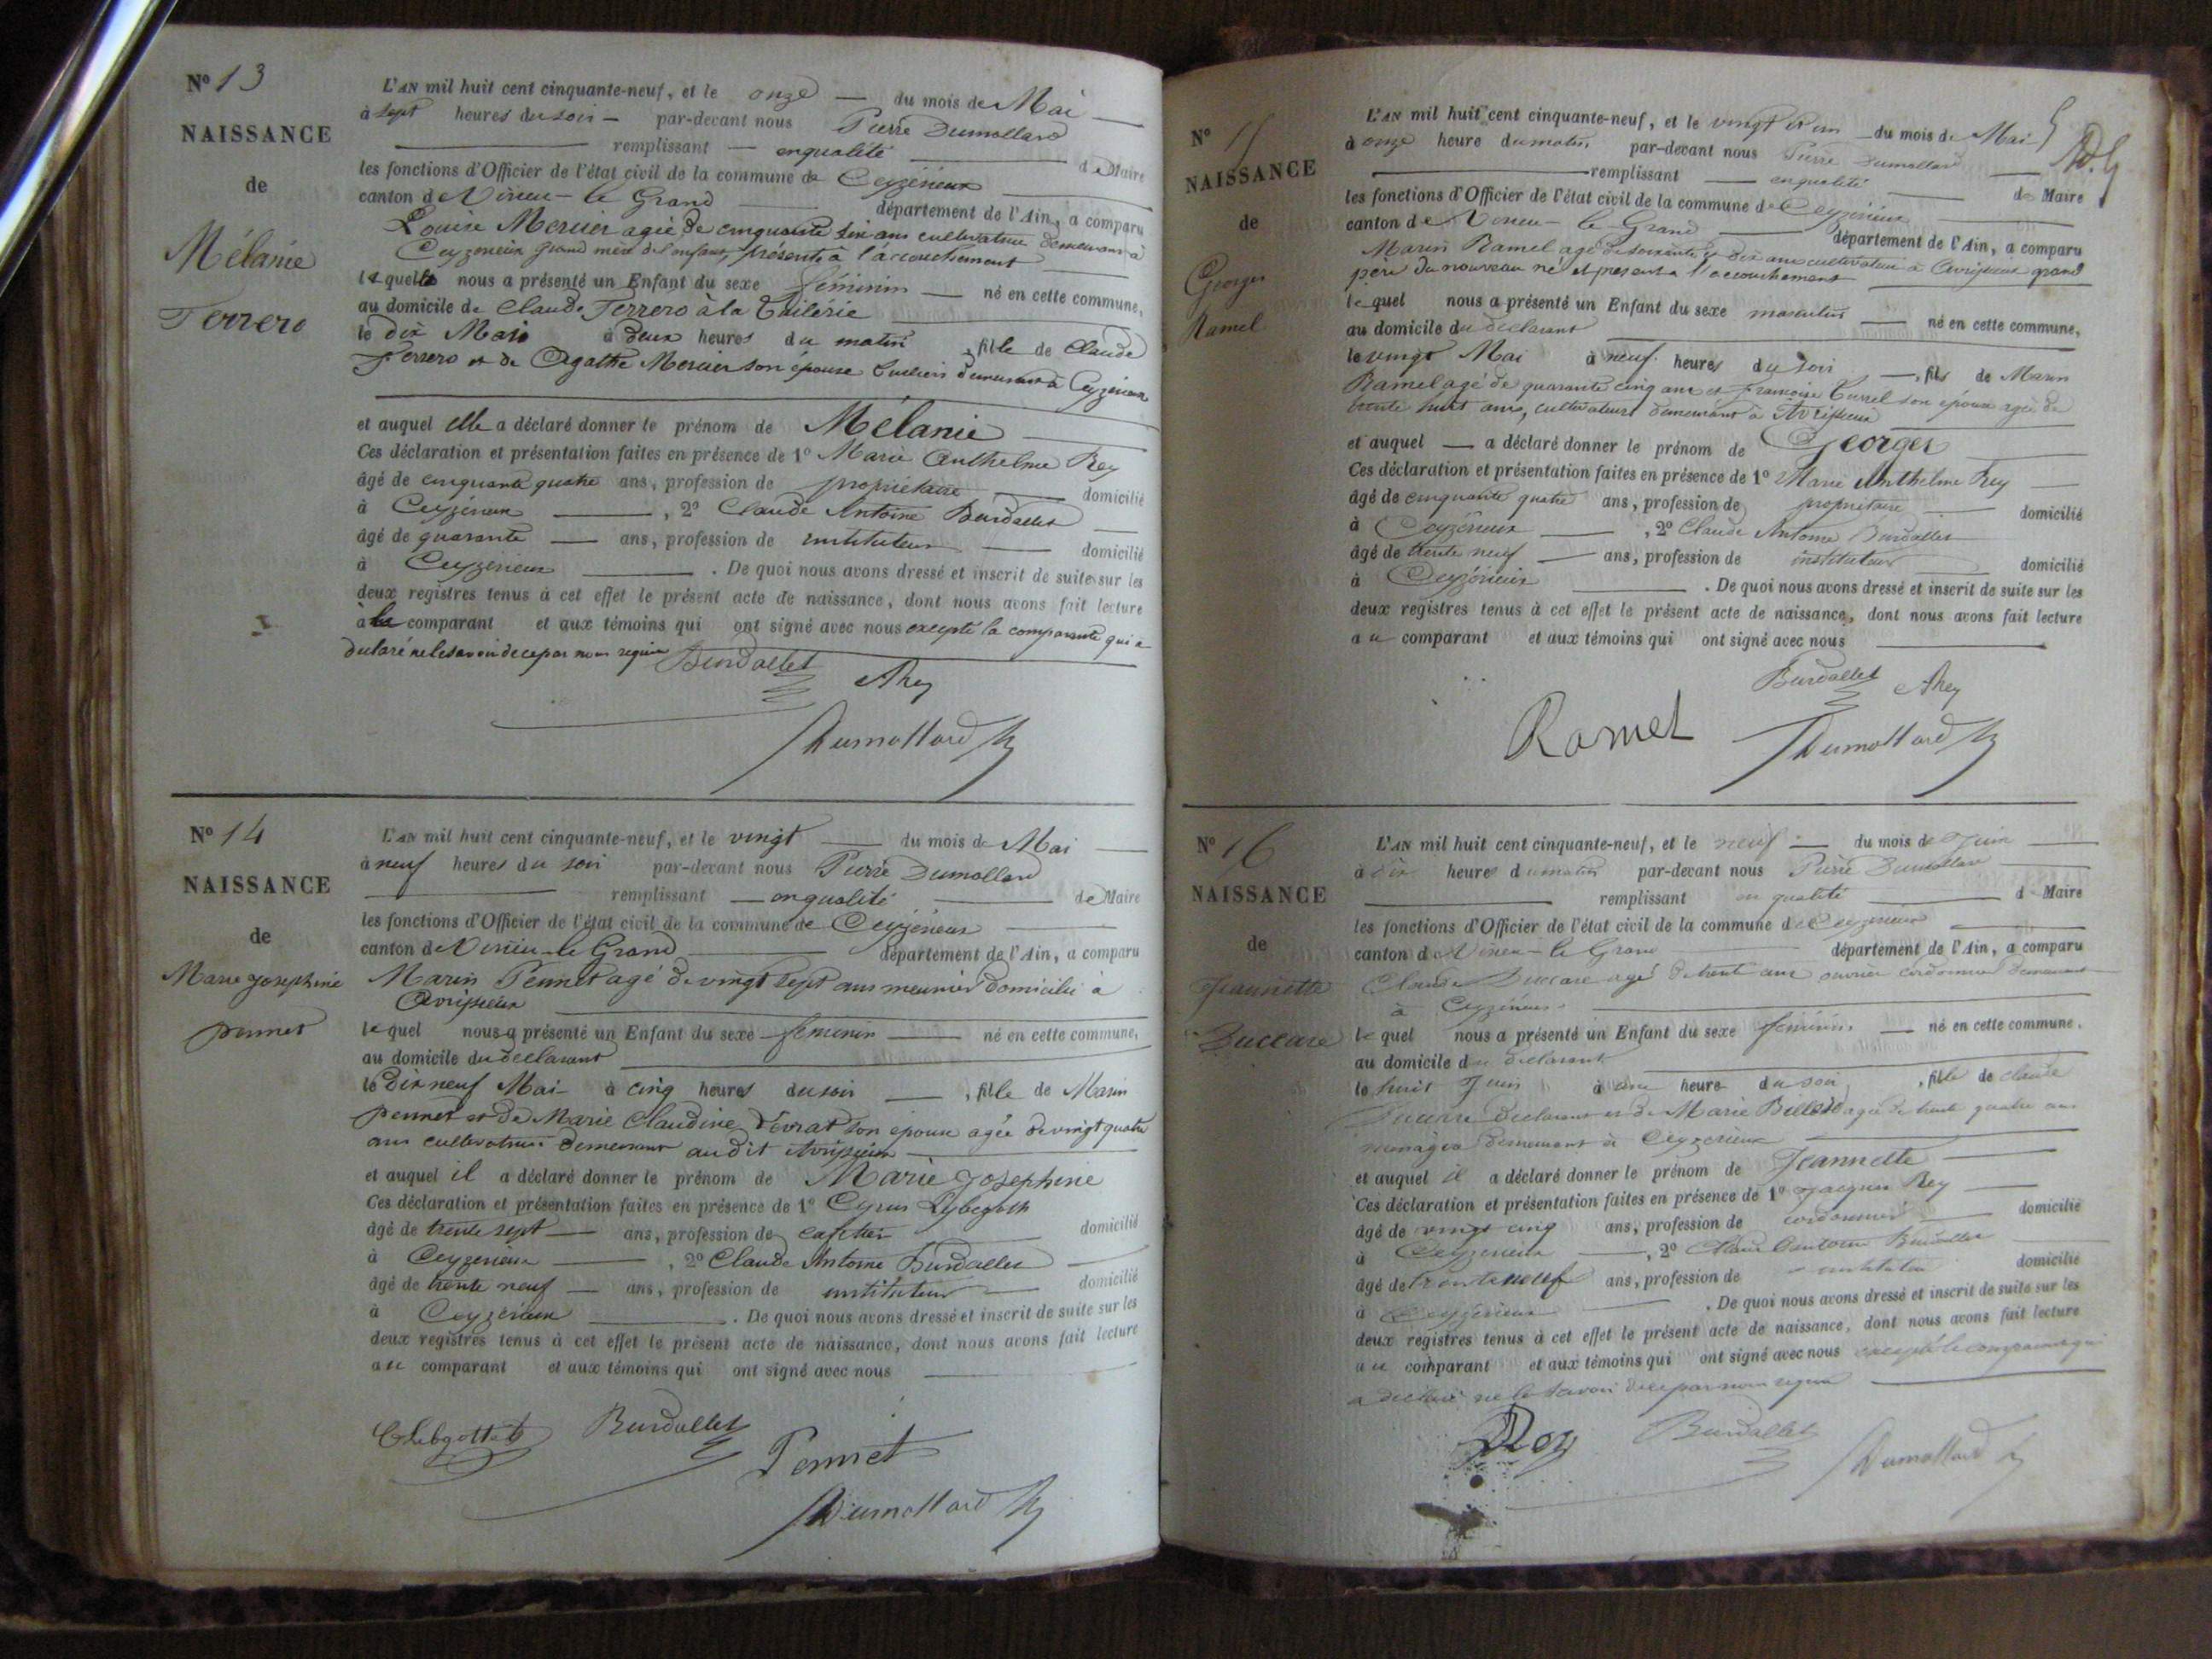 N° 13
NAISSANCE
de
Mélanie
Ferrero
L'AN mil huit cent cinquante-neuf, et le onze du mois de Mai
à sept heures du soir par-devant nous Pierre Dumollard
remplissant en qualité de Maire
les fonctions d'Officier de l'état civil de la commune de Ceyzérieux
canton de Virieu-le Grand département de l'Ain, a comparu
Louise Mercier agée de cinquante six ans cultivatrice demeurant à
Ceyzerieux grand mère de l'enfant, présente à l'accouchement
laquelle nous a présenté un Enfant du sexe féminin né en cette commune,
au domicile de Claude Ferrero à la Tuilérie
le dix Mai à deux heures du matin, fille de Claude
Ferrero et de Agathe Mercier son épouse tuiliers demeurant à Ceyzérieux
et auquel elle a déclaré donner le prénom de Mélanie
Ces déclaration et présentation faites en présence de 1° Marie Anthelme Rey
âgé de cinquante quatre ans, profession de propriétaire domicilié
à Ceyzérieux, 2° Claude Antoine Burdallet
âgé de quarante ans, profession de instituteur domicilié
à Ceyzérieux. De quoi nous avons dressé et inscrit de suite sur les
deux registres tenus à cet effet le présent acte de naissance, dont nous avons fait lecture
à la comparant et aux témoins qui ont signé avec nous excepté la comparante qui a
declaré ne le savoir de ce par nous requise
Burdallet
ARey
Dumollard
N° 14
NAISSANCE
de
Marie Josephine
pennet
L'AN mil huit cent cinquante-neuf, et le vingt du mois de Mai
à neuf heures du soir par-devant nous Pierre Dumollard
remplissant en qualité de Maire
les fonctions d'Officier de l'état civil de la commune de Ceyzérieux
canton de Virieu-le Grand département de l'Ain, a comparu
Marin Pennet agé de vingt sept ans meunier domicilié à
Avrissieux
lequel nous a présenté un Enfant du sexe feminin né en cette commune,
au domicile du declarant
le dix neuf Mai à cinq heures du soir, fille de Marin
pennet et de Marie Claudine Devrat son epouse agée de vingt quatre
ans cultivateurs demeurant audit Avrissieux
et auquel il a déclaré donner le prénom de Marie Josephine
Ces déclaration et présentation faites en présence de 1° Cyrus
âgé de trente sept ans, profession de cafetier domicilié
à Ceyzerieux, 2° Claude Antoine Burdallet
âgé de trente neuf ans, profession de instituteur domicilié
à Ceyzerieux. De quoi nous avons dressé et inscrit de suite sur les
deux registres tenus à cet effet le présent acte de naissance, dont nous avons fait lecture
au comparant et aux témoins qui ont signé avec nous
Burdallet
Pennet
Dumollard
N° 15
NAISSANCE
de
Georges
Ramel
L'AN mil huit cent cinquante-neuf, et le vingt et un du mois de Mai
à onze heure du matin par-devant nous Pierre Dumollard
remplissant en qualité de Maire
les fonctions d'Officier de l'état civil de la commune de Ceyzérieux
canton de Virieu-le Grand département de l'Ain, a comparu
Marin Ramel agé de soixante et dix ans cultivateur à Avrissieux grand
pere du nouveau né et present a l'accouchement
lequel nous a présenté un Enfant du sexe masculin né en cette commune,
au domicile du declarant
le vingt Mai à neuf heures du soir, fils de Marin
Ramel agé de quarante cinq ans et francoise Currel son épouse agée de
trente huit ans, cultivateurs demeurant à Avrissieux
et auquel a déclaré donner le prénom de Georges
Ces déclaration et présentation faites en présence de 1° Marie Anthelme Rey
âgé de cinquante quatre ans, profession de propriétaire domicilié
à Ceyzérieux, 2° Claude Antoine Burdallet
âgé de trente neuf ans, profession de instituteur domicilié
à Ceyzérieux. De quoi nous avons dressé et inscrit de suite sur les
deux registres tenus à cet effet le présent acte de naissance, dont nous avons fait lecture
au comparant et aux témoins qui ont signé avec nous
Burdallet
ARey
Ramel
Dumollard
N° 16
NAISSANCE
de
Jeannette
Duccare
L'AN mil huit cent cinquante-neuf, et le neuf du mois de Juin
à dix heures du matin par-devant nous Pierre Dumollard
remplissant en qualité d Maire
les fonctions d'Officier de l'état civil de la commune de Ceyzerieux
canton de Virieu-le Grand département de l'Ain, a comparu
Claude Duccare agé de trente ans ouvrier cordonnier demeurant
à Ceyzérieux
lequel nous a présenté un Enfant du sexe feminin né en cette commune.
au domicile du declarant
le huit Juin à une heure du soir, fille de claude
Duccare declarant et de Marie Billod agée de trente quatre ans
menagere demeurant à Ceyzerieux
et auquel il a déclaré donner le prénom de Jeannette
Ces déclaration et présentation faites en présence de 1° Jacques Rey
âgé de vingt cinq ans, profession de cordonnier domicilié
à Ceyzerieux, 2° Claude Antoine Burdallet
âgé de trente neuf ans, profession de instituteur domicilié
à Ceyzérieux. De quoi nous avons dressé et inscrit de suite sur les
deux registres tenus à cet effet le présent acte de naissance, dont nous avons fait lecture
au comparant et aux témoins qui ont signé avec nous excepté le comparant qui
a declaré ne le savoir de ce par nous requis
Rey
Burdallet
Dumollard